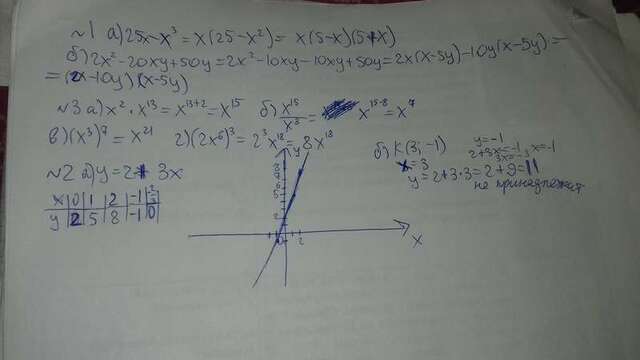 ~1 a) 25x-x³ = x(25-x²) = x(5-x)(5+x)
б) 2x²-20xy+50y = 2x²-10xy-10xy+50y = 2x(x-5y)-10y(x-5y) =
= (2x-10y)(x-5y)
~3 a) x²·x¹³ = x¹³⁺² = x¹⁵ б) x¹⁵/x⁸ = x¹⁵⁻⁸ = x⁷
в) (x³)⁷ = x²¹ г) (2x⁶)³ = 2³x¹⁸ = 8x¹⁸
~2 a) y = 2+3x
x 0 1 2 -1 -2/3
y 2 5 8 -1 0
y
x
б) K(3;-1)
x=3
y = 2+3·3 = 2+9 = 11
не принадлежит
y=-1
2+3x=-1
3x=-3
x=-1